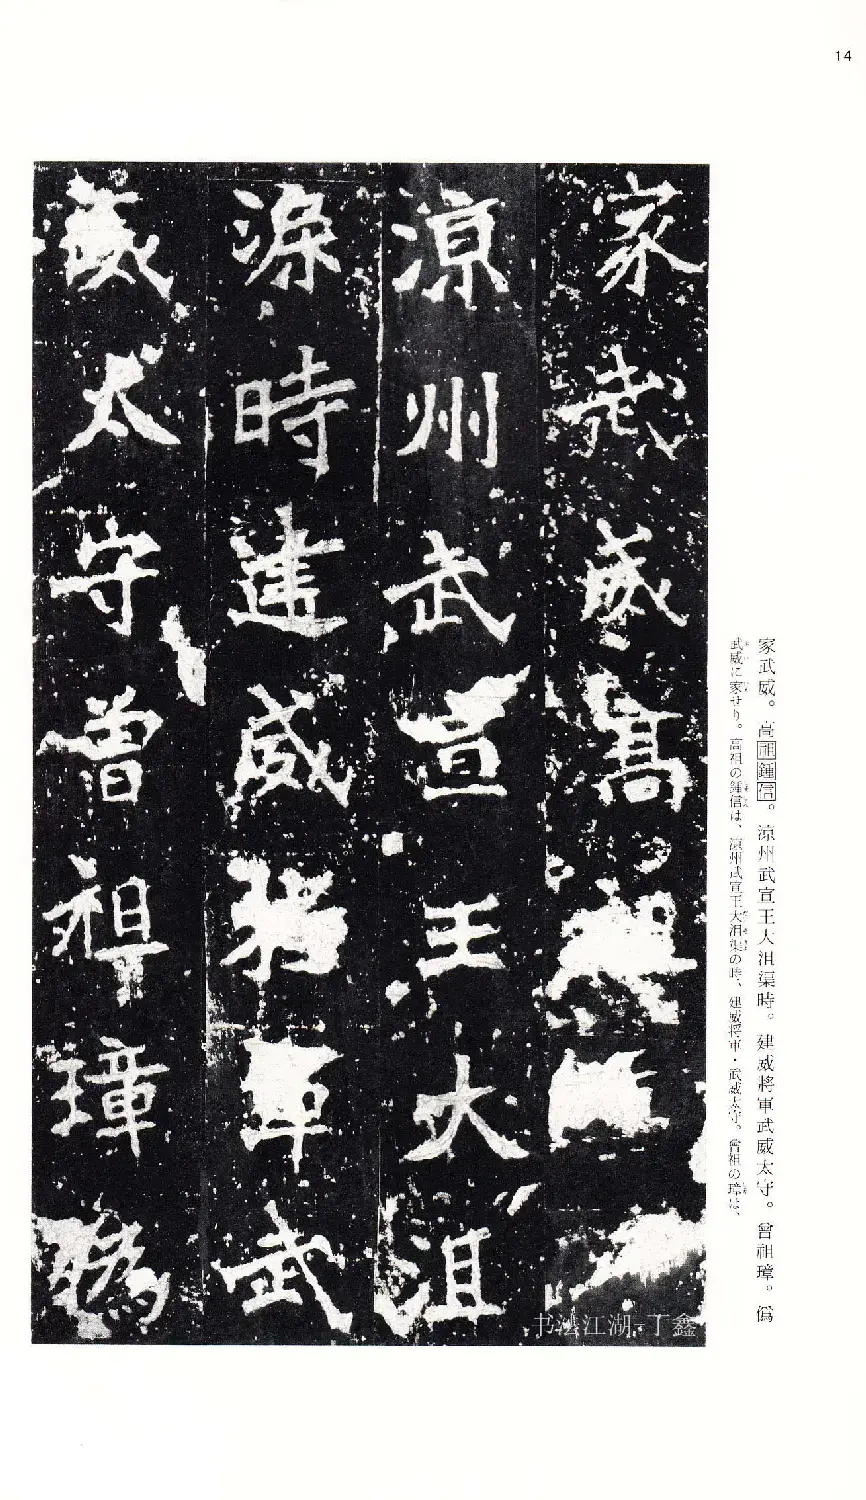 14
家武威。高祖鍾信。涼州武宣王大沮渠時。建威將軍武威太守。曾祖璋。僞
武威に家せり。高祖の鍾信は、涼州武宣王大沮渠の時、建威将軍・武威太守。曾祖の璋は、
家武威高祖
涼州武宣王大沮
渠時建威將軍武
威太守曾祖璋偽
书法江湖-丁鑫